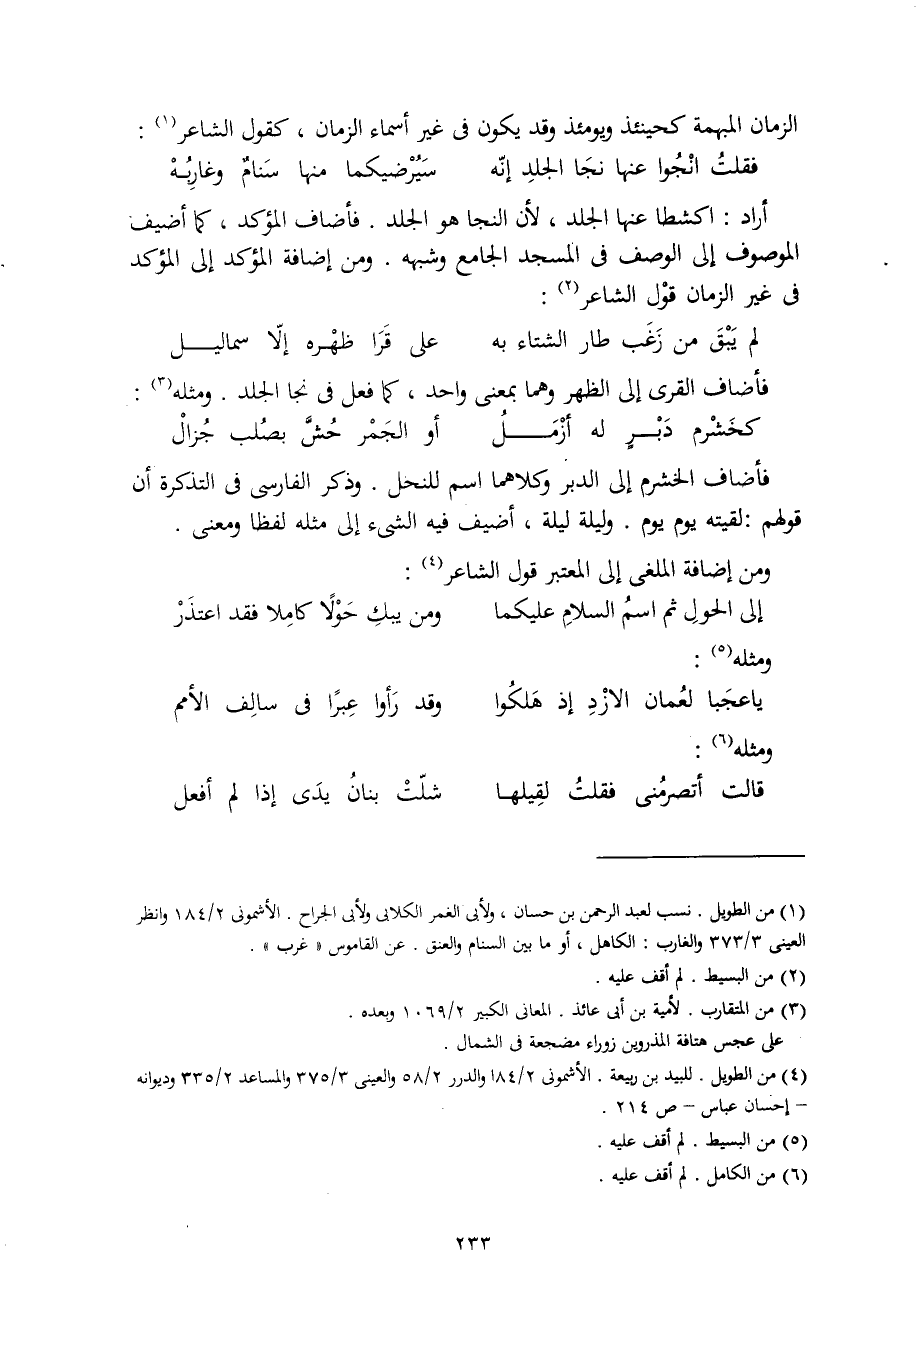 الزمان المبهمة كحينئذ ويومئذ وقد يكون فى غير أسماء الزمان ، كقول الشاعر(١) :
فقلتُ انْجُوا عنها نجَا الجلدِ إنّه سَيُرْضيكما منها سَنامٌ وغارِبُهْ
أراد : اكشطا عنها الجلد ، لأن النجا هو الجلد . فأضاف المؤكد ، كما أضيف
الموصوف إلى الوصف فى المسجد الجامع وشبهه . ومن إضافة المؤكد إلى المؤكد
فى غير الزمان قوْل الشاعر(٢) :
لم يَبْقَ من زَغَب طار الشتاء به على قَرَا ظهْره إلّا سماليـــل
فأضاف القرى إلى الظهر وهما بمعنى واحد ، كما فعل فى نجا الجلد . ومثله(٣) :
كخَشْرم دَبْــرٍ له أزْمَــــلُ أو الجَمْر حُشَّ بصُلب جُزالْ
فأضاف الخشرم إلى الدبر وكلاهما اسم للنحل . وذكر الفارسى فى التذكرة أن
قولهم :لقيته يوم يوم . وليلة ليلة ، أضيف فيه الشىء إلى مثله لفظا ومعنى .
ومن إضافة الملغى إلى المعتبر قول الشاعر(٤) :
إلى الحولِ ثم اسمُ السلامِ عليكما ومن يبكِ حَوْلًا كامِلا فقد اعتذَرْ
ومثله(٥) :
ياعجَبا لعُمان الازْدِ إذ هَلكُوا وقد رَأوا عِبرًا فى سالِف الأمم
ومثله(٦) :
قالت أتصرمُنى فقلتُ لقِيلهـا شلّتْ بنانُ يدَى إذا لم أفعل
(١) من الطويل . نسب لعبد الرحمن بن حسان ، ولأبى الغمر الكلابى ولأبى الجراح . الأشمونى ١٨٤/٢ وانظر
العينى ٣٧٣/٣ والغارب : الكاهل ، أو ما بين السنام والعنق . عن القاموس « غرب » .
(٢) من البسيط . لم أقف عليه .
(٣) من المتقارب . لأمية بن أبى عائذ . المعانى الكبير ١٠٦٩/٢ وبعده .
على عجس هتافة المذروين زوراء مضجعة فى الشمال .
(٤) من الطويل . للبيد بن ربيعة . الأشمونى ١٨٤/٢ والدرر ٥٨/٢ والعينى ٣٧٥/٣ والمساعد ٣٣٥/٢ وديوانه
– إحسان عباس – ص ٢١٤ .
(٥) من البسيط . لم أقف عليه .
(٦) من الكامل . لم أقف عليه .
٢٣٣